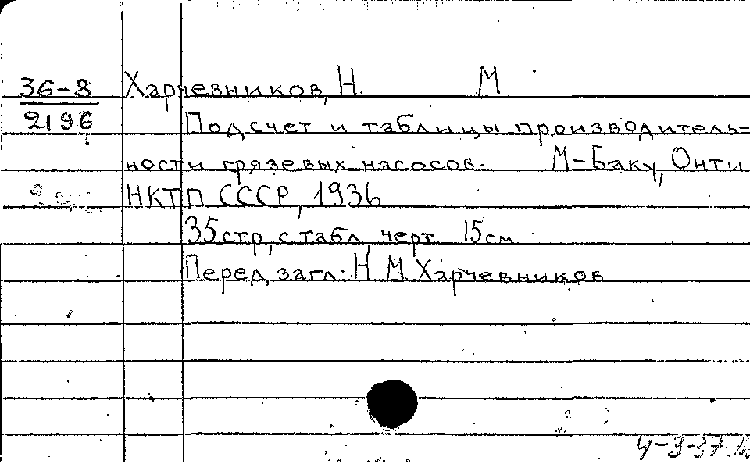 36-8 Харчевников, Н. М.
2196 Подсчет и таблицы производитель-
ности грязевых насосов. М-Баку, Онти
НКТП СССР, 1936
35 стр, с табл, черт. 15 см.
Перед загл: Н. М. Харчевников
4-3-37